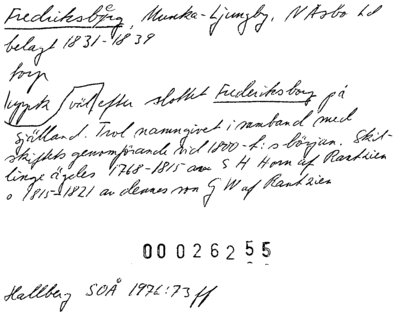 Fredriksborg, Munka-Ljungby, N Åsbo hd
belagt 1831-1839
torp
uppk. efter slottet Frederiksborg på
Själland. Trol namngivet i samband med
skiftets genomförande vid 1800-t:s början. Skill-
linge ägdes 1768-1815 av S H Horn af Rantzien
o 1815-1821 av dennes son G W af Rantzien
00026255
Hallberg SOÅ 1976:73 ff